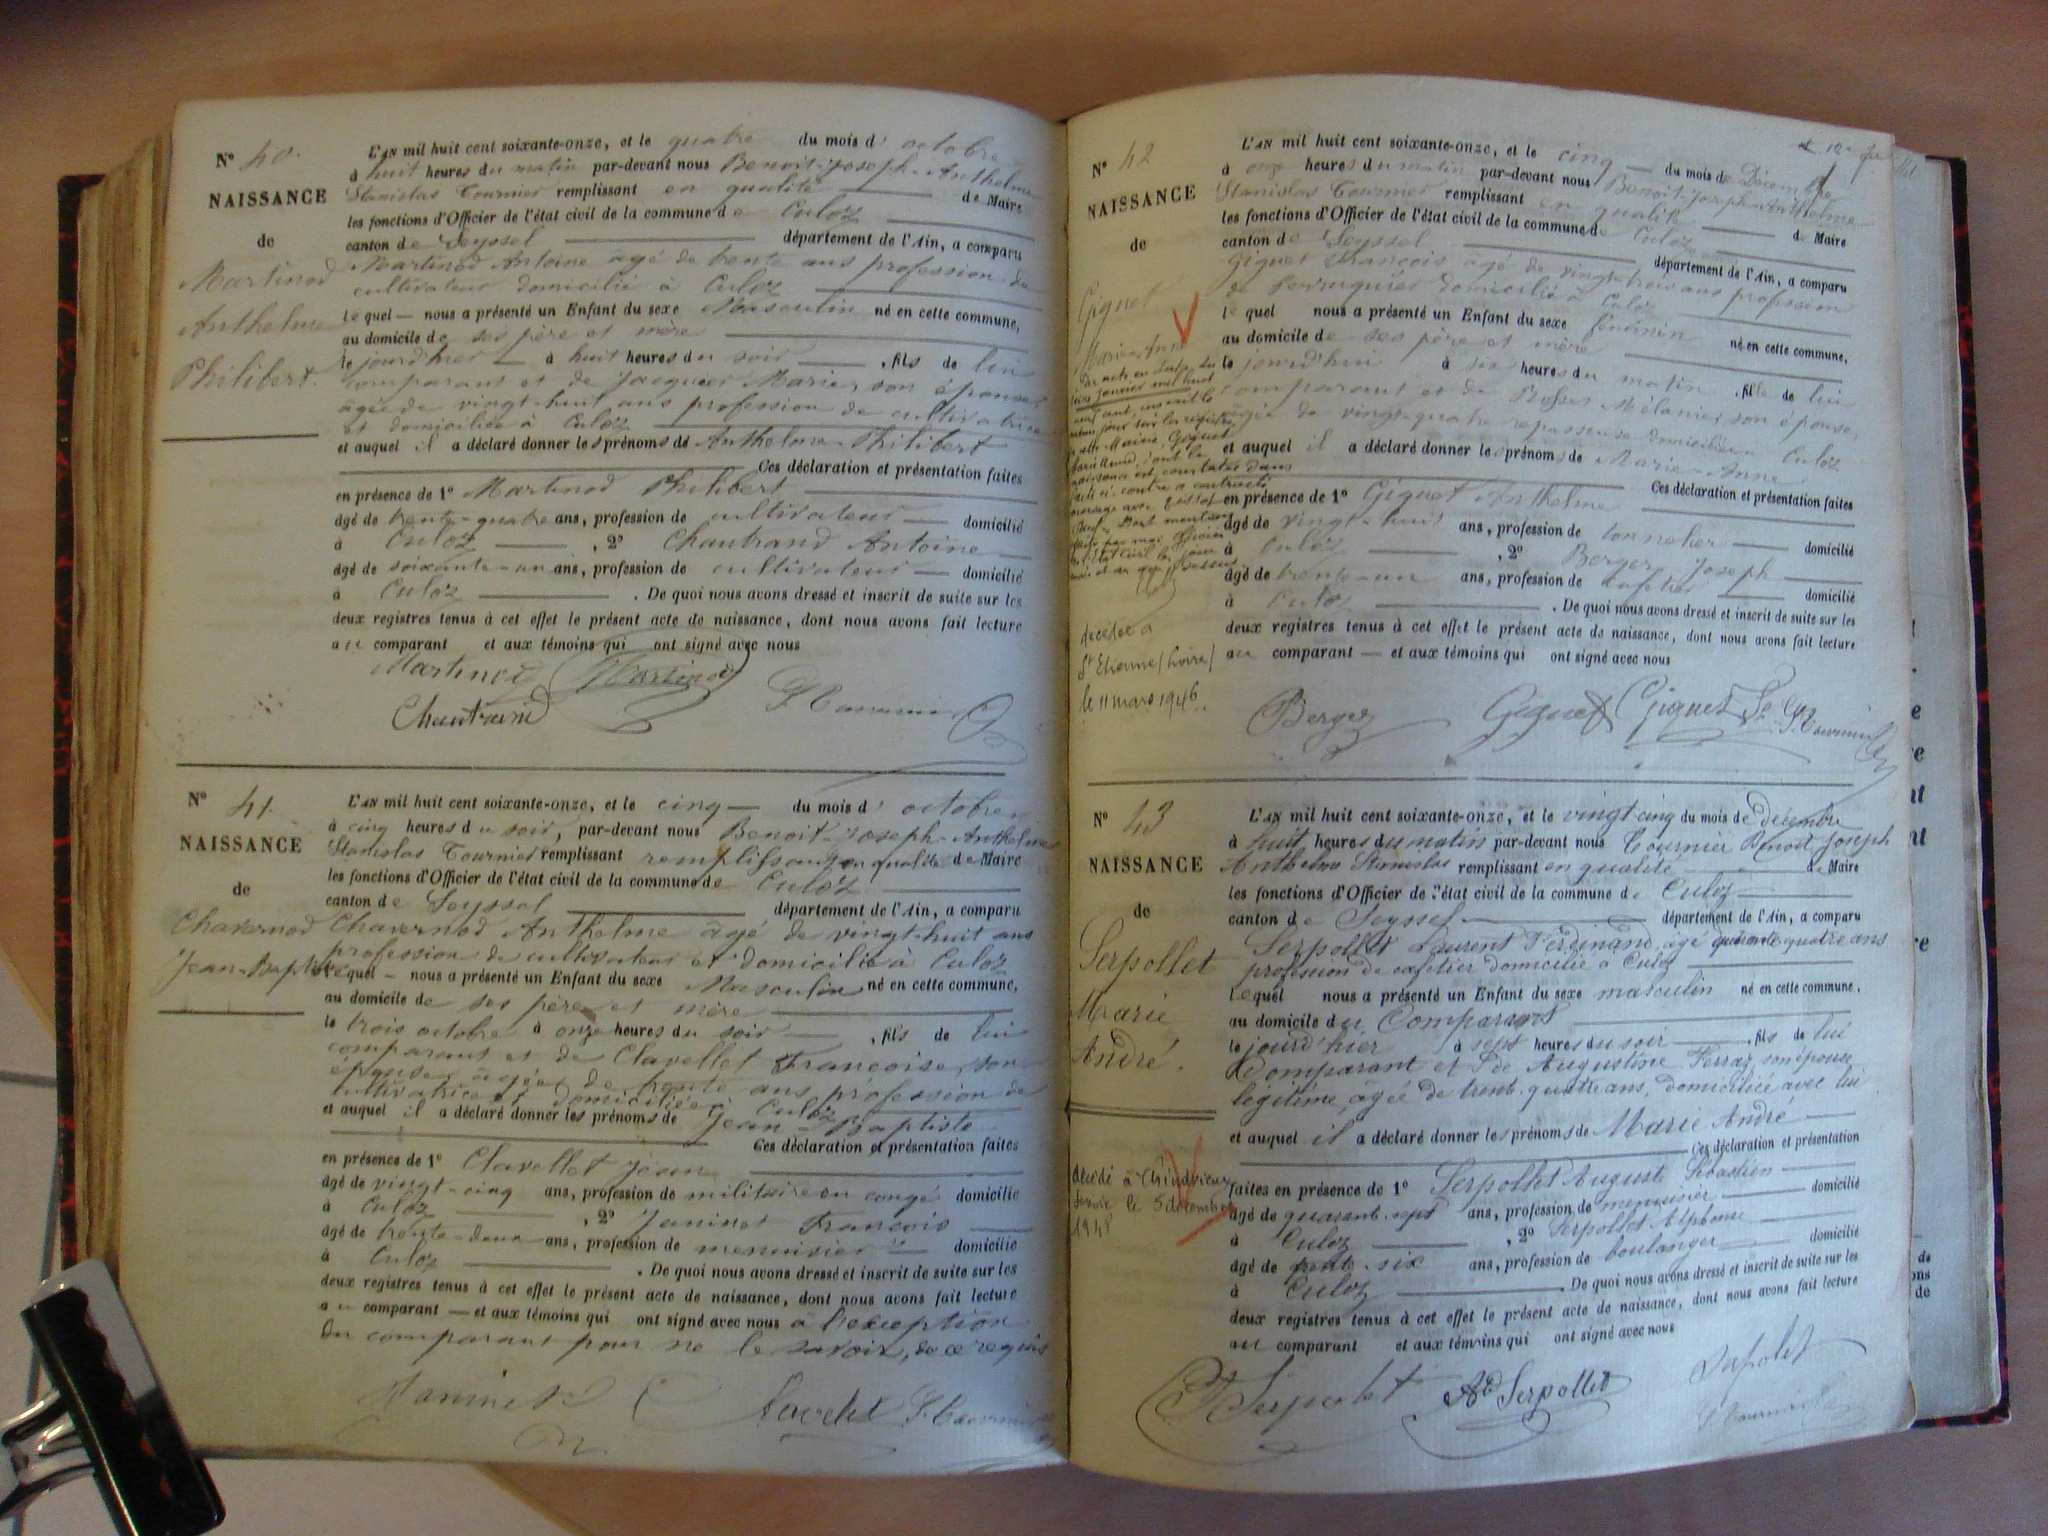 N° 40.
NAISSANCE
de
Martinod
Anthelme
Philibert.
L'AN mil huit cent soixante-onze, et le quatre du mois d' octobre
à huit heures du matin par-devant nous Benoit-Joseph-Anthelme
Stanislas Tournier remplissant en qualité de Maire
les fonctions d'Officier de l'état civil de la commune de Culoz
canton de Seyssel département de l'Ain, a comparu
Martinod Antoine âgé de trente ans profession de
cultivateur domicilié à Culoz
lequel nous a présenté un Enfant du sexe Masculin né en cette commune,
au domicile de ses père et mère
le jourd'hier à huit heures du soir, fils de lui
comparant et de Jacquier Marie, son épouse,
âgée de vingt-huit ans profession de cultivatrice
et domiciliée à Culoz
et auquel il a déclaré donner les prénoms de Anthelme-Philibert
Ces déclaration et présentation faites
en présence de 1° Martinod Philibert
âgé de trente-quatre ans, profession de cultivateur domicilié
à Culoz, 2° Chautrand Antoine
âgé de soixante-un ans, profession de cultivateur domicilié
à Culoz. De quoi nous avons dressé et inscrit de suite sur les
deux registres tenus à cet effet le présent acte de naissance, dont nous avons fait lecture
au comparant et aux témoins qui ont signé avec nous
Martinod Martinod
Chautrand
N° 41.
NAISSANCE
de
Chavernod
Jean-Baptiste
L'AN mil huit cent soixante-onze, et le cinq du mois d' octobre
à cinq heures du soir, par-devant nous Benoit-Joseph-Anthelme
Stanislas Tournier remplissant remplissant en qualité de Maire
les fonctions d'Officier de l'état civil de la commune de Culoz
canton de Seyssel département de l'Ain, a comparu
Chavernod Anthelme âgé de vingt-huit ans
profession de cultivateur et domicilié à Culoz
lequel nous a présenté un Enfant du sexe Masculin né en cette commune,
au domicile de ses père et mère
le trois octobre à onze heures du soir, fils de lui
comparant et de Clavellet Françoise, son
épouse, âgée de trente ans profession de
cultivatrice et domiciliée à Culoz
et auquel il a déclaré donner les prénoms de Jean-Baptiste
Ces déclaration et présentation faites
en présence de 1° Clavellet Jean
âgé de vingt-cinq ans, profession de militaire en congé domicilié
à Culoz, 2° Janinet François
âgé de trente-deux ans, profession de menuisier domicilié
à Culoz. De quoi nous avons dressé et inscrit de suite sur les
deux registres tenus à cet effet le présent acte de naissance, dont nous avons fait lecture
au comparant et aux témoins qui ont signé avec nous à l'exception
du comparant pour ne le savoir, de ce requis
Janinet
N° 42
NAISSANCE
de
Giguet
Marie-Anne
L'AN mil huit cent soixante-onze, et le cinq du mois de Décembre
à onze heures du matin par-devant nous Benoit-Joseph-Anthelme
Stanislas Tournier remplissant en qualité de Maire
les fonctions d'Officier de l'état civil de la commune de Culoz
canton de Seyssel département de l'Ain, a comparu
Giguet François âgé de vingt-trois ans profession
de Perruquier domicilié à Culoz
lequel nous a présenté un Enfant du sexe féminin né en cette commune,
au domicile de ses père et mère
le jourd'hui à six heures du matin, fille de lui
comparant et de Rosset Mélanie, son épouse,
âgée de vingt-quatre repasseuse domiciliée à Culoz
et auquel il a déclaré donner les prénoms de Marie-Anne
Ces déclaration et présentation faites
en présence de 1° Giguet Anthelme
âgé de vingt-huit ans, profession de tonnelier domicilié
à Culoz, 2° Berger Joseph
âgé de trente-un ans, profession de cafetier domicilié
à Culoz. De quoi nous avons dressé et inscrit de suite sur les
deux registres tenus à cet effet le présent acte de naissance, dont nous avons fait lecture
au comparant et aux témoins qui ont signé avec nous
décédée à
St Etienne (Loire)
le 11 mars 1946.
Berger Giguet Giguet
N° 43
NAISSANCE
de
Serpollet
Marie
André.
L'AN mil huit cent soixante-onze, et le vingt cinq du mois de décembre
à huit heures du matin par-devant nous Tournier Benoit Joseph
Anthelme Stanislas remplissant en qualité de Maire
les fonctions d'Officier de l'état civil de la commune de Culoz
canton de Seyssel département de l'Ain, a comparu
Serpollet Laurent Ferdinand, âgé quarante quatre ans
profession de cafetier domicilié à Culoz
lequel nous a présenté un Enfant du sexe masculin né en cette commune,
au domicile du Comparant
le jourd'hier à sept heures du soir, fils de lui
Comparant et de Augustine Ferraz son épouse
légitime, âgée de trente quatre ans, domiciliée avec lui
et auquel il a déclaré donner les prénoms de Marie André
Ces déclaration et présentation
faites en présence de 1° Serpollet Auguste Sébastien
âgé de quarante-sept ans, profession de menuisier domicilié
à Culoz, 2° Serpollet Alphonse
âgé de trente-six ans, profession de boulanger domicilié
à Culoz. De quoi nous avons dressé et inscrit de suite sur les
deux registres tenus à cet effet le présent acte de naissance, dont nous avons fait lecture
au comparant et aux témoins qui ont signé avec nous
décédé à Chindrieux
Savoie le 5 décembre
1948
Serpolet At Serpollet